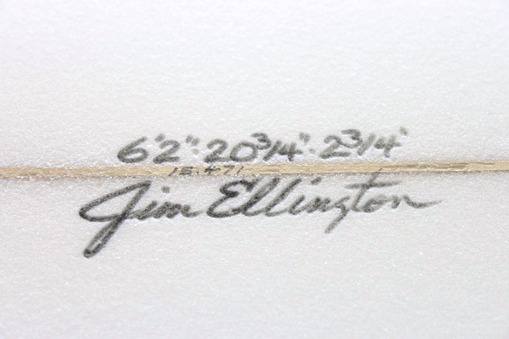 6'2"·20 3/4"·2 3/4"
Jim Ellington